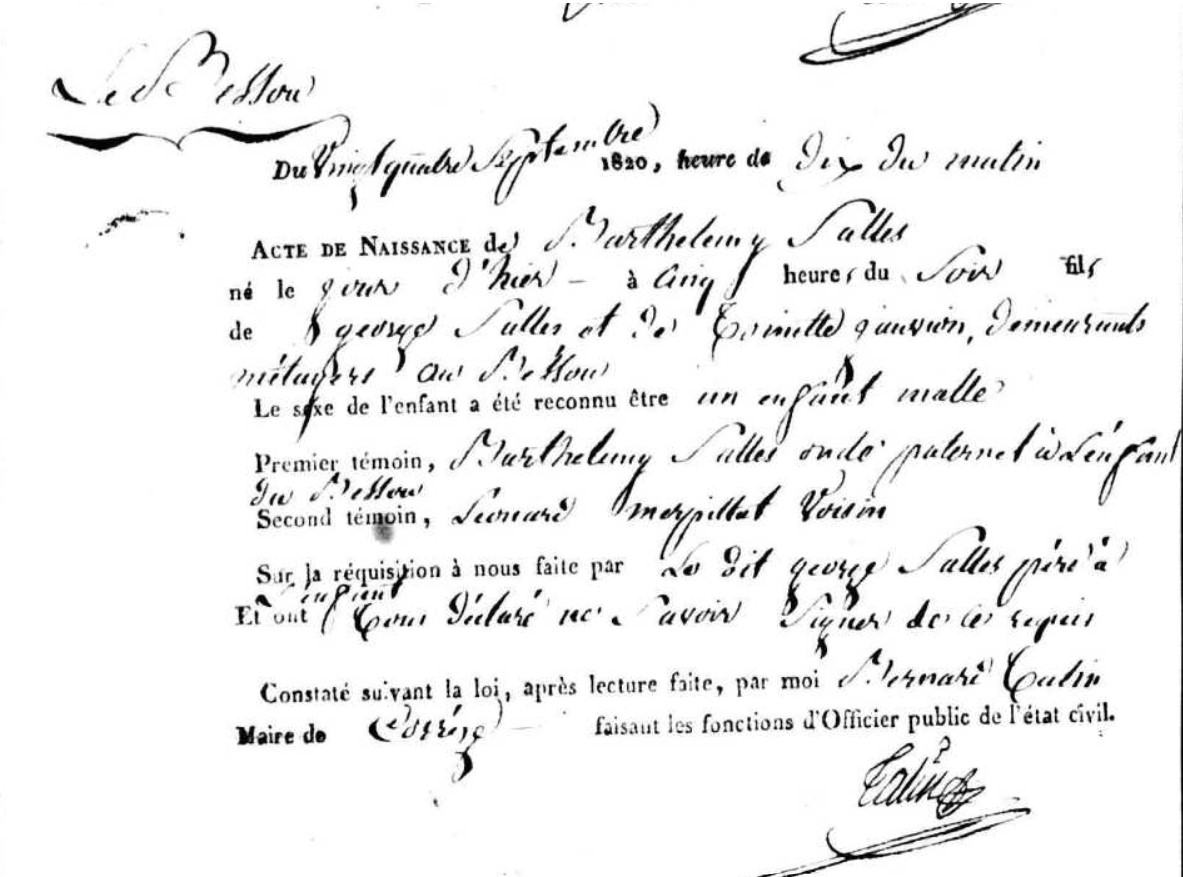 Le Bessou
Du Vingt quatre Septembre 1820, heure de Dix du matin
ACTE DE NAISSANCE de Barthelemy Salles
né le jour d'hier - à Cinq heures du Soir fils
de george Salles et de Toinette demeurants
métayers au Bessou
Le sexe de l'enfant a été reconnu être un enfant malle
Premier témoin, Barthelemy Salles oncle paternel à L'enfant
du Bessou
Second témoin, Leonard Voisin
Sur la réquisition à nous faite par Le dit george Salles père à
L'enfant
Et ont tous déclaré ne Savoir Signer de ce requis
Constaté suivant la loi, après lecture faite, par moi Bernard
Maire de faisant les fonctions d'Officier public de l'état civil.